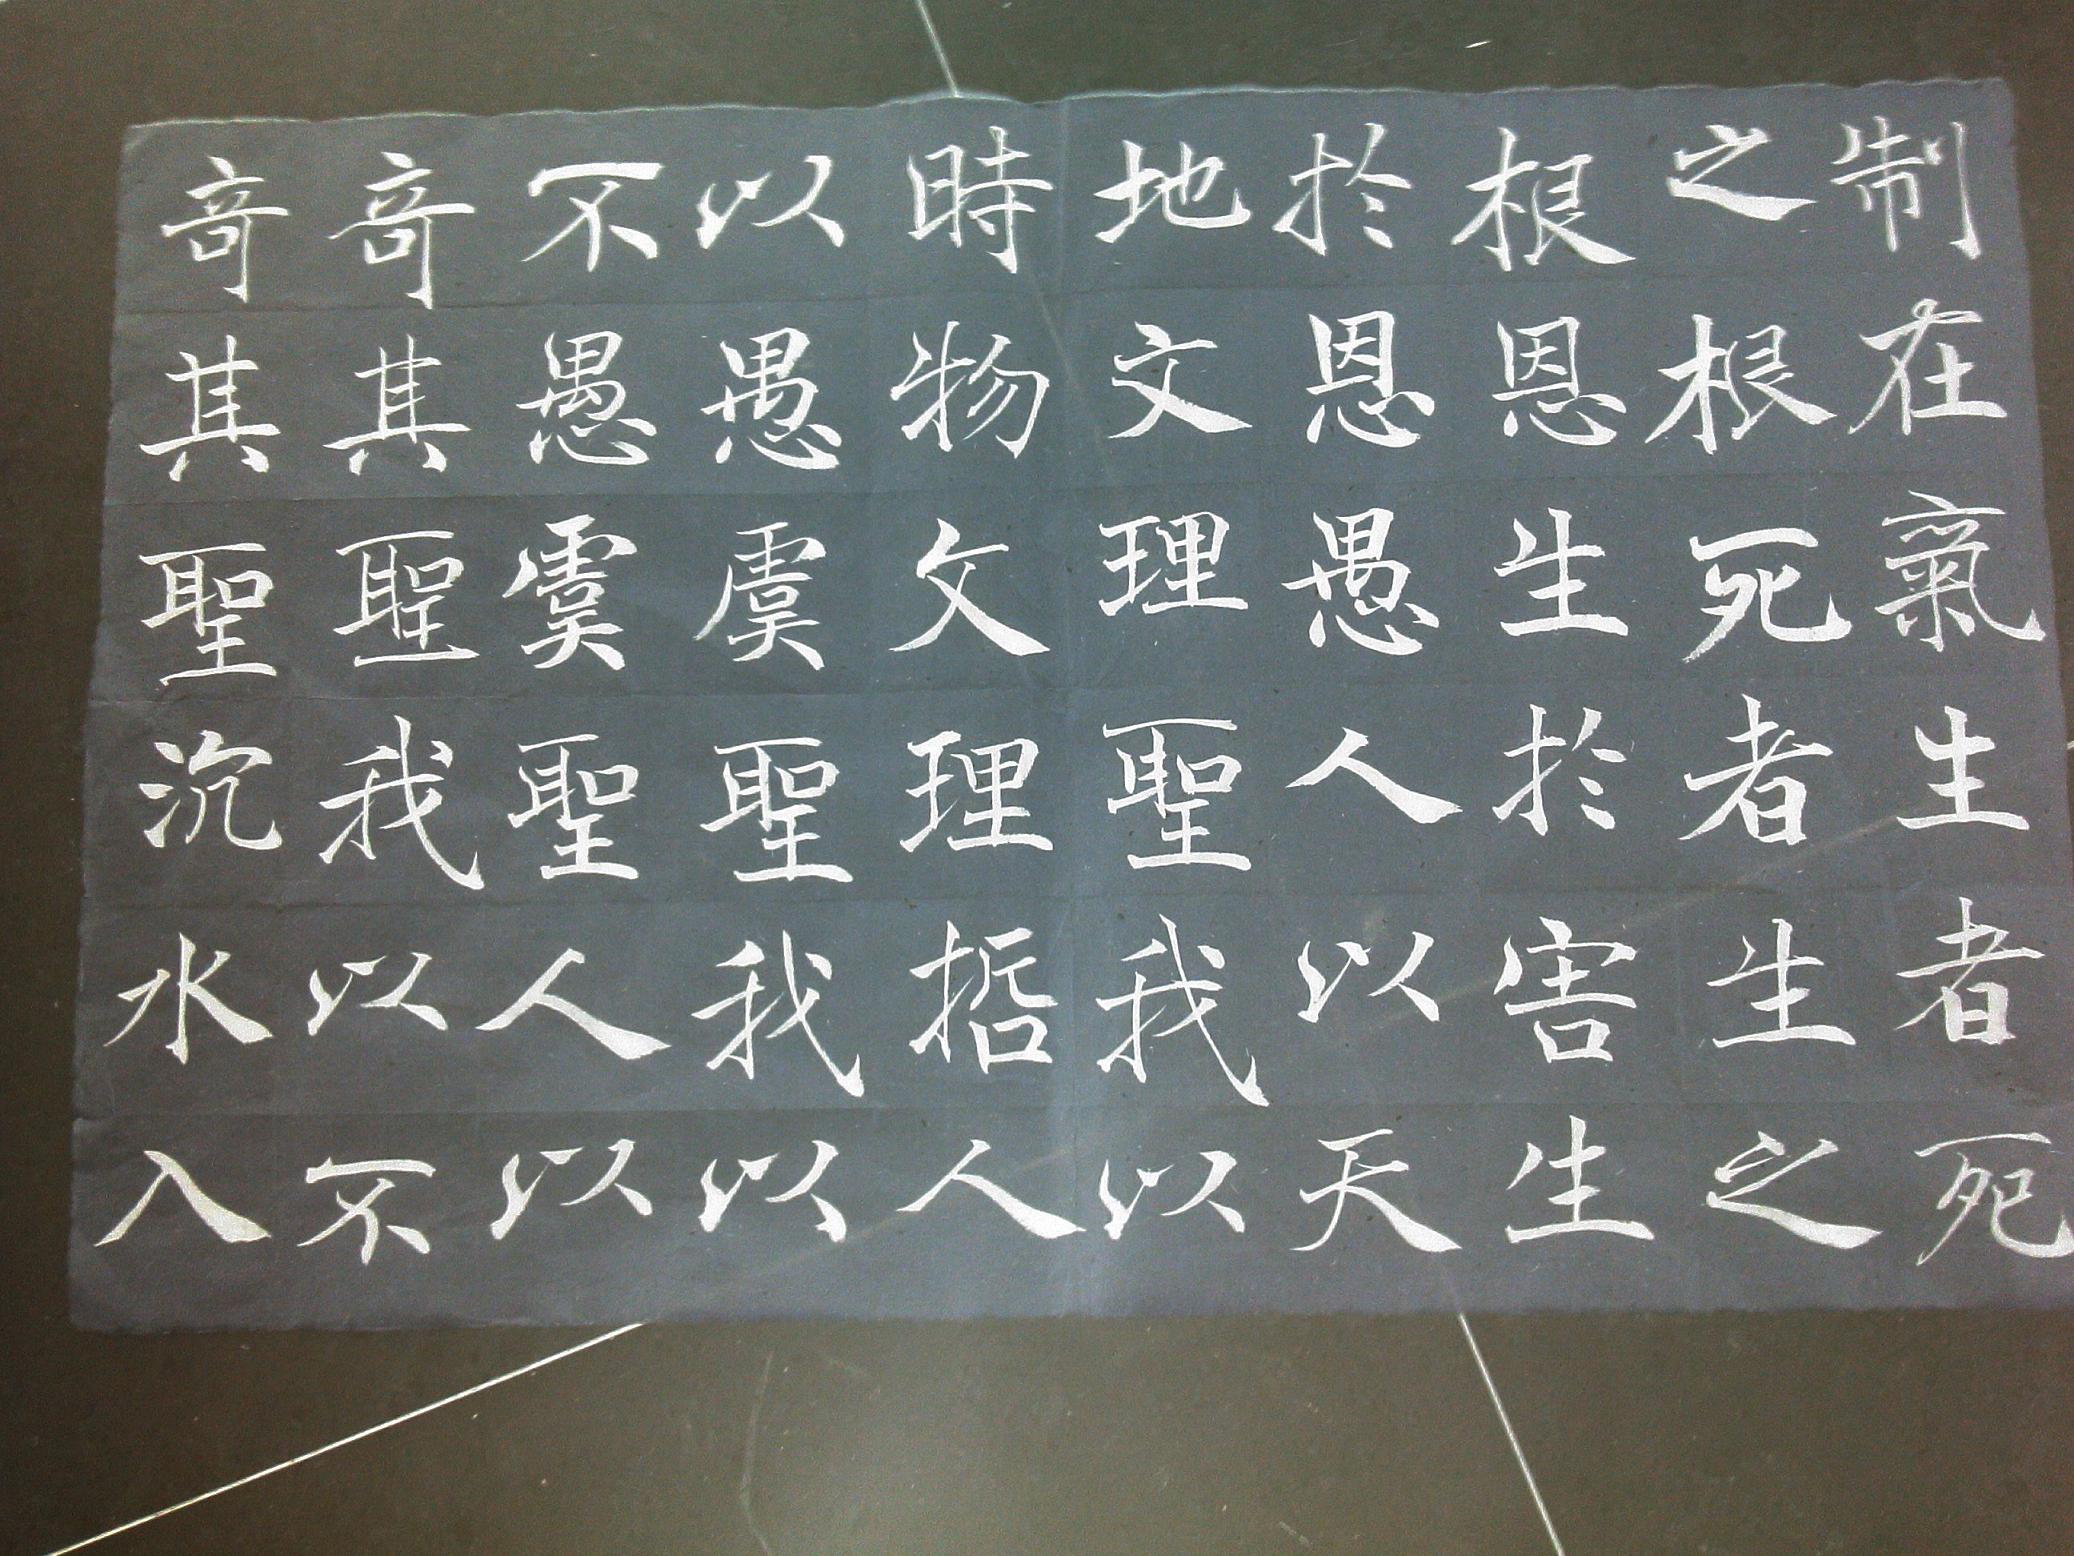 制在氣生者死
之根死者生之
根恩生於害生
於恩愚人以天
地文理聖我以
時物文理哲人
以愚虞聖我以
不愚虞聖人以
奇其聖我以不
奇其聖沉水入